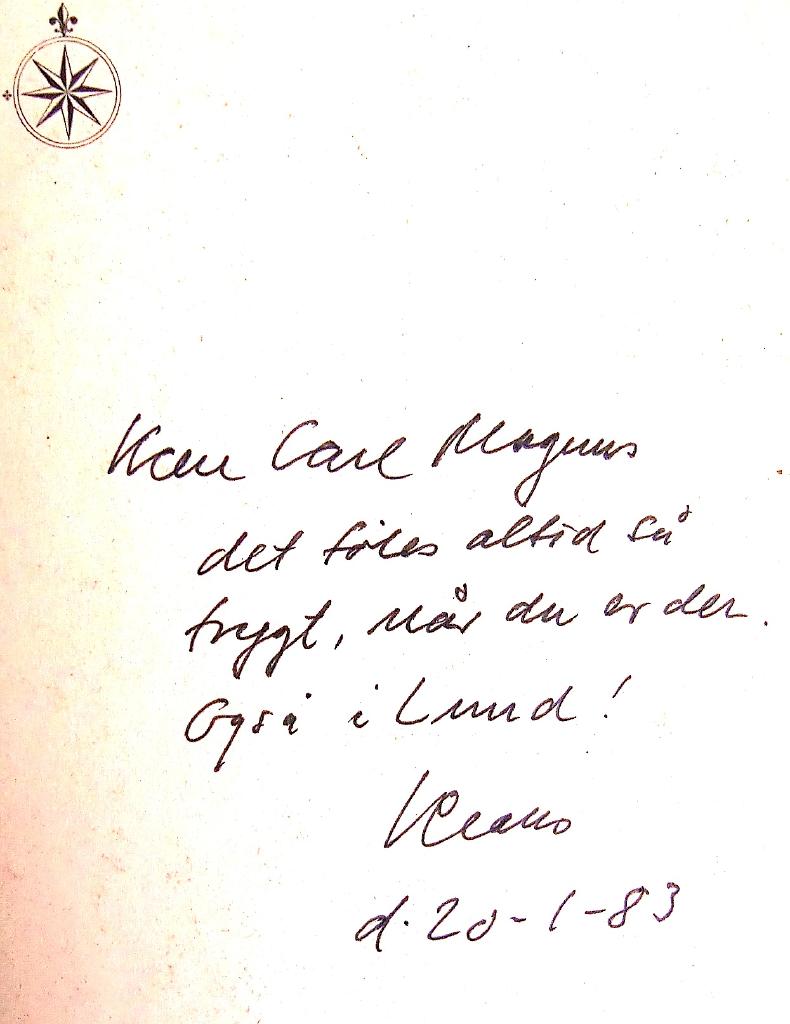 Kære Carl Magnus
det föles altid så
trygt, når du er der.
Også i Lund!
Klaus
d. 20-1-83